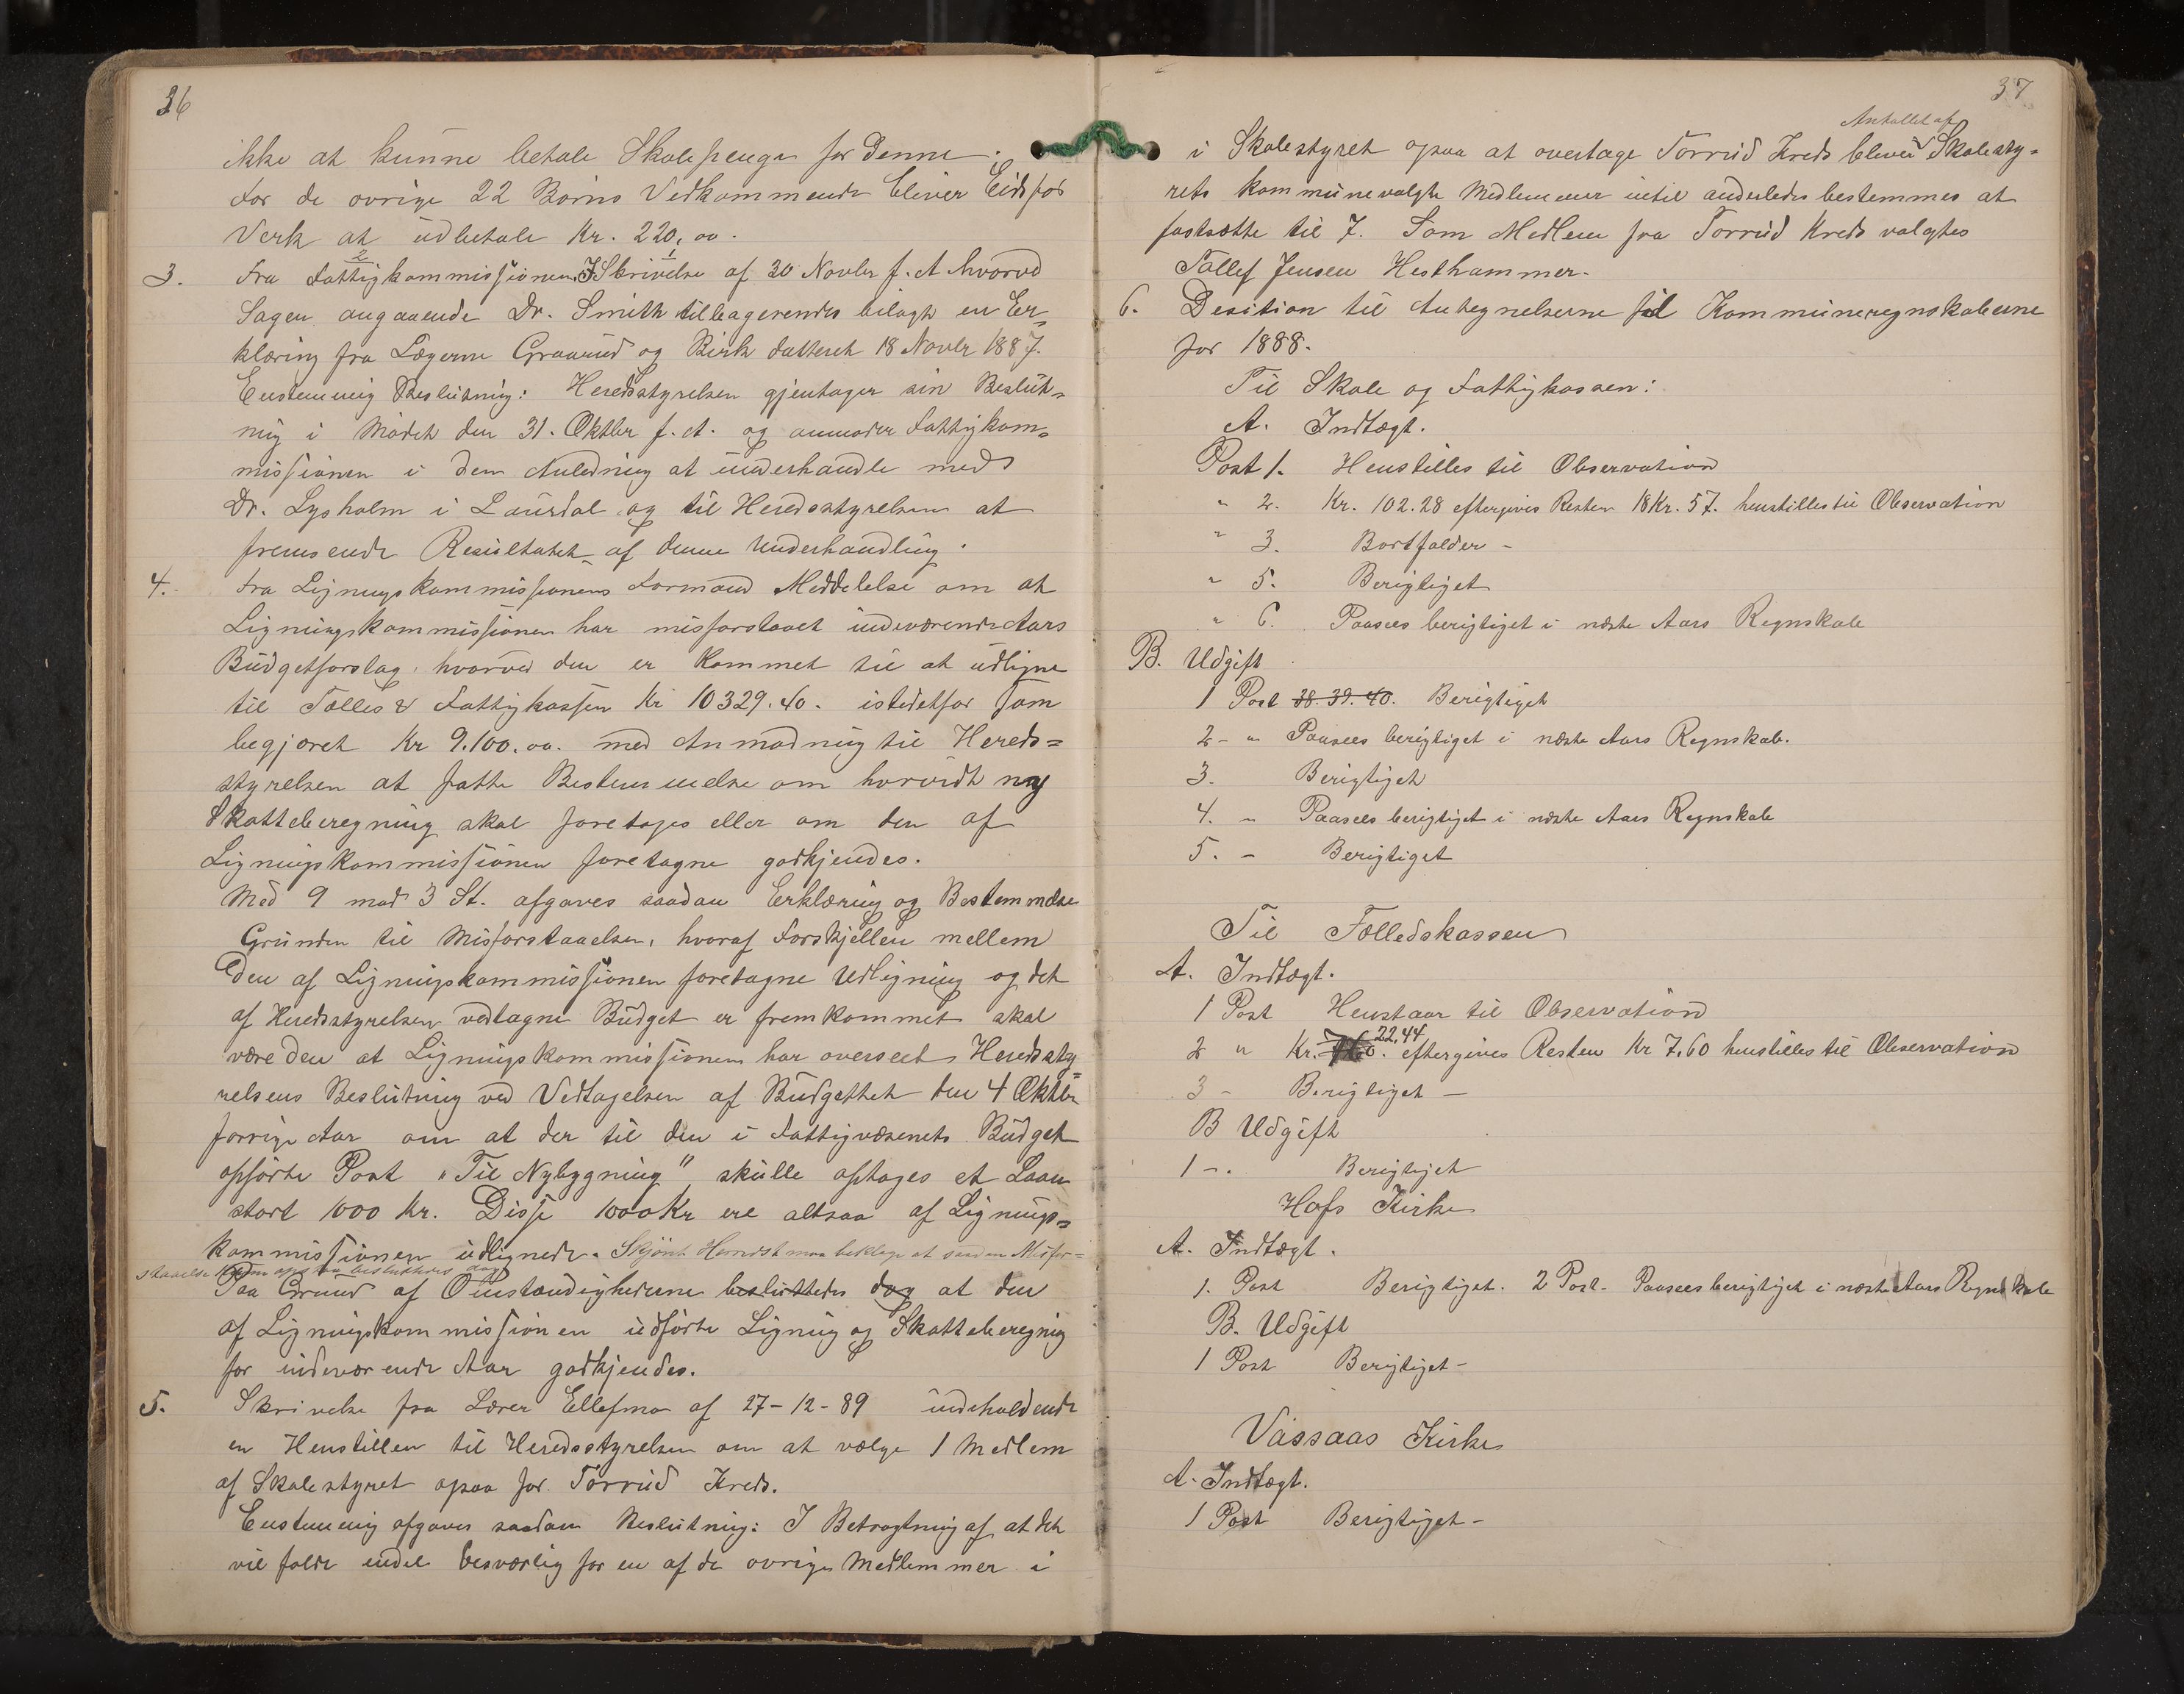 36
ikke at kunne betale Skolepenge for denne.
For de øvrige 22 Børns Vedkommende bliver Eidsfos
Verk at udbetale Kr. 220,00.
3. Fra Fattigkommissionen Skrivelse af 30 Novbr f. A hvorved
Sagen angaaende Dr. Smith tilbagesendes bilagt en Er=
klæring fra Lægerne Graarud og Birk datteret 18 Novbr 1887.
Enstemmig Beslutning: Heredsstyrelsen gjentager sin Beslut=
ning i Mødet den 31. Oktbr f. A. og anmoder Fattigkom=
missionen i den Anledning at underhandle med
Dr. Lysholm i Laurdal og til Heredsstyrelsen at
fremsende Resultatet af denne Underhandling.
4. Fra Ligningskommissionens Formand Meddelelse om at
Ligningskommissionen har misforstaaet indeværende Aars
Budgetforslag, hvorved den er kommet til at udligne
til Fælles & Fattigkassen Kr 10329.40. istedetfor som
begjæret Kr 9.100.00. med Anmodning til Hereds=
styrelsen at fatte Bestemmelse om hvorvidt ny
Skatteberegning skal foretages eller om den af
Ligningskommissionen foretagne godkjendes.
Med 9 mod 3 St. afgaves saadan Erklæring og Bestemmelse
Grunden til Misforstaaelsen, hvoraf Forskjellen mellem
den af Ligningskommissionen foretagne Udligning og det
af Heredsstyrelsen vedtagne Budget er fremkommet skal
være den at Ligningskommissionen har overseet Heredssty=
relsens Beslutning ved Vedtagelsen af Budgettet den 4 Oktbr
forrige Aar om at der til den i Fattigvæsenets Budget
opførte Post "Til Nybygning", skulle optages et Laan
stort 1000 Kr. Disse 1000 Kr ere altsaa af Lignings=
kommissionen udlignede. Skjønt Herredst maa beklage at saadan Misfor=
staaelse besluttes dog
Paa Grund af Omstændighederne besluttedes dog at den
af Ligningskommissionen udførte Ligning og Skatteberegning
for indeværende Aar godkjendes.
5. Skrivelse fra Lærer Ellefmo af 27-12-89 indeholdende
en Henstillen til Heredsstyrelsen om at vælge 1 Medlem
af Skolestyret ogsaa for Torrud Kreds.
Enstemmig afgaves saadan Beslutning: I Betragtning af at det
vil falde endel besværlig for en af de øvrige Medlemmer i
37
Antallet af
i Skolestyret ogsaa at overtage Torrud Kreds bliver Skolesty=
rets kommunevalgte Medlemmer indtil anderledes bestemmes at
fastsætte til 7. Som Medlem fra Torrud Kreds valgtes
Tollef Jensen Hesthammer.
6. Desition til Antegnelserne til Kommuneregnskaberne
for 1888.
Til Skole og Fattigkassen:
A. Indtægt.
Post 1. Henstilles til Observation
" 2. Kr. 102.28 eftergives Resten 18 Kr. 57. henstilles til Observation
" 3. Bortfalder -
" 5. Berigtiget
" 6. Paasees berigtiget i næste Aars Regnskab
B. Udgift
1 Post 38. 39. 40. Berigtiget
2 - " Paasees berigtiget i næste Aars Regnskab.
3. Berigtiget
4. - Paasees berigtiget i næste Aars Regnskab
5. - Berigtiget
Til Fælledskassen
A. Indtægt.
1 Post Henstaar til Observation
2 " Kr. 22,44 eftergives Resten Kr 7,60 henstilles til Observation
3 - Berigtiget -
B Udgift
1 -. Berigtiget
Hofs Kirke
A. Indtægt.
1. Post Berigtiget. 2 Post. Paasees berigtiget i næste Aars Regnskab
B. Udgift
1 Post Berigtiget -
Vassaas Kirke
A. Indtægt.
1 Post Berigtiget -